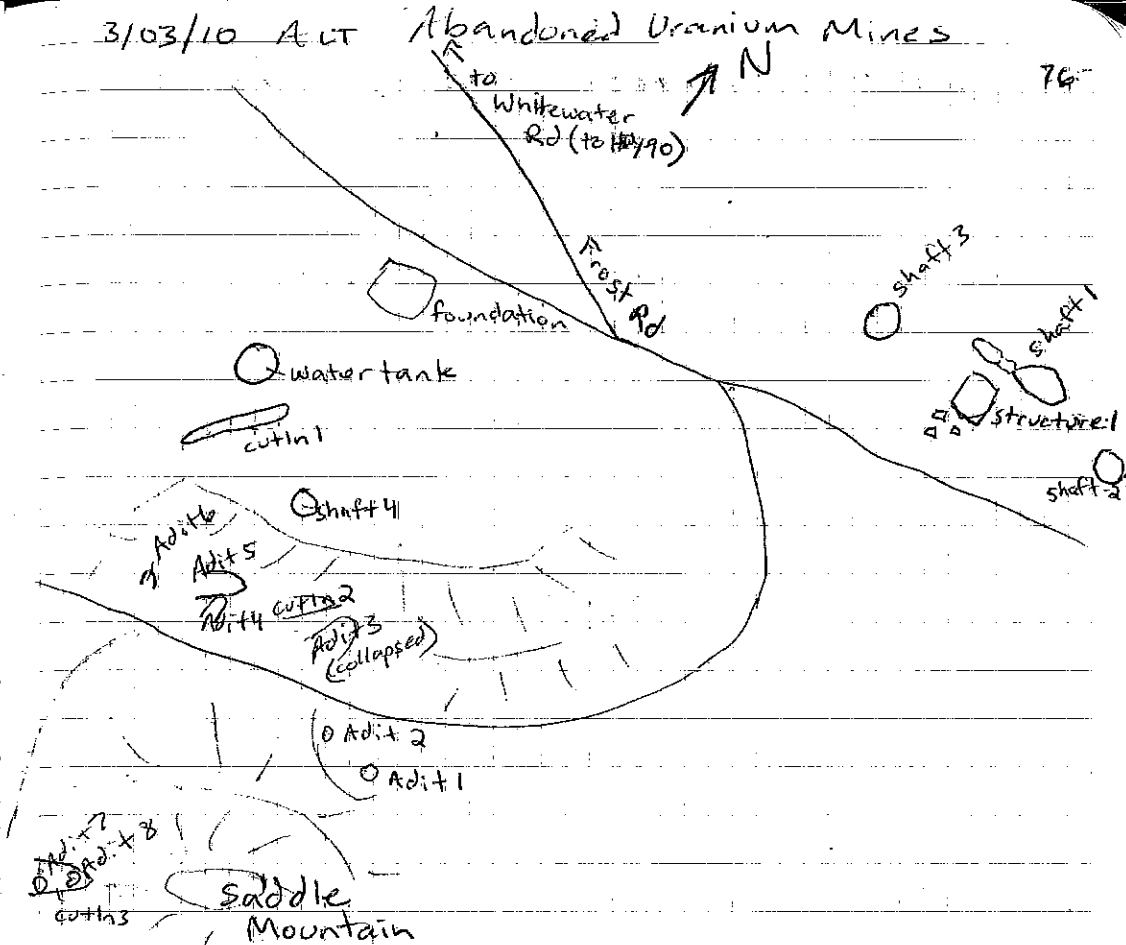 3/03/10 ALT Abandoned Uranium Mines
N
76
to
Whitewater
Rd (to Hwy 90)
Frost Rd
foundation
shaft 3
shaft 1
structure 1
shaft 2
water tank
cut in 1
shaft 4
Adit 6
Adit 5
Adit 4
cut in 2
Adit 3
(collapsed)
Adit 2
Adit 1
Adit 7
Adit 8
cut in 3
Saddle
Mountain